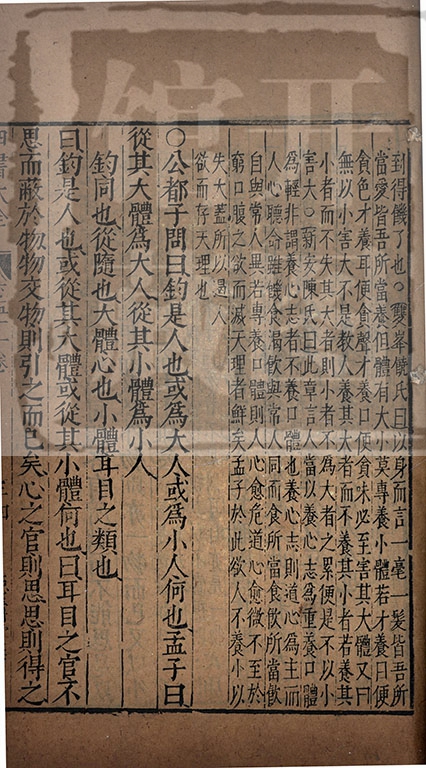 到得饑了也○雙峯饒氏曰以身而言一毫一髮皆吾所
當愛皆吾所當養但體有大小莫專養小體若才養目便
貪色才養耳便貪聲才養口便貪味必至害其大體又曰
無以小害大不是教人養其大者而不養其小者若養其
小者而不失其大者則小者不爲大者之累便是不以小
害大○新安陳氏曰此章言人當以養心志爲重養口體
爲輕非謂養心志者不養口體也養心志則道心爲主而
人心聽命雖饑食渴飲與常人同而食所當食飲所當飲
自與常人異若專養口體則人心愈危道心愈微不至於
窮口腹之欲而滅天理者鮮矣孟子於此欲人不養小以
失大蓋所以遏人
欲而存天理也
○公都子問曰鈞是人也或爲大人或爲小人何也孟子曰
從其大體爲大人從其小體爲小人
鈞同也從隨也大體心也小體耳目之類也
曰鈞是人也或從其大體或從其小體何也曰耳目之官不
思而蔽於物物交物則引之而已矣心之官則思思則得之